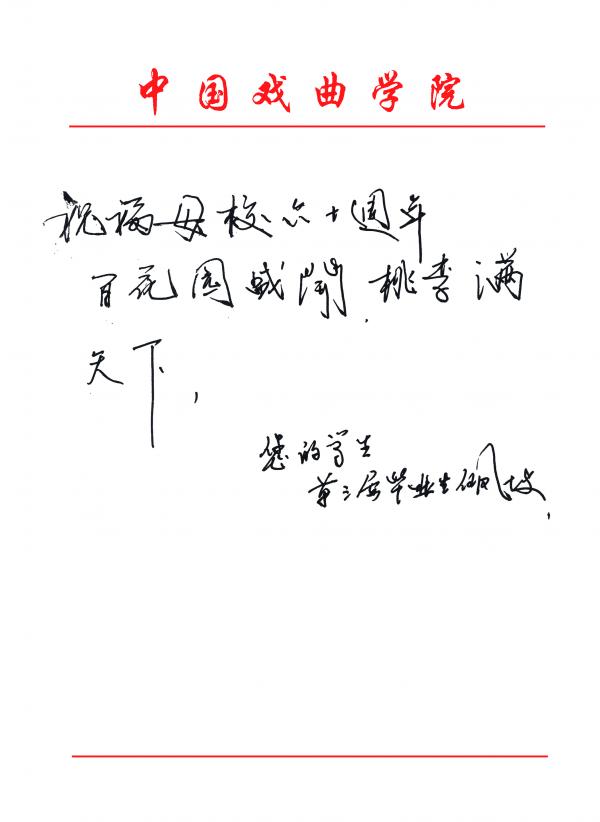 中国戏曲学院
祝福母校六十週年
百花园 桃李满
天下,
您的学生
第三届毕业生